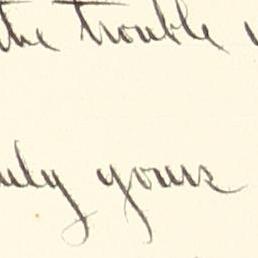 the trouble
uly yours